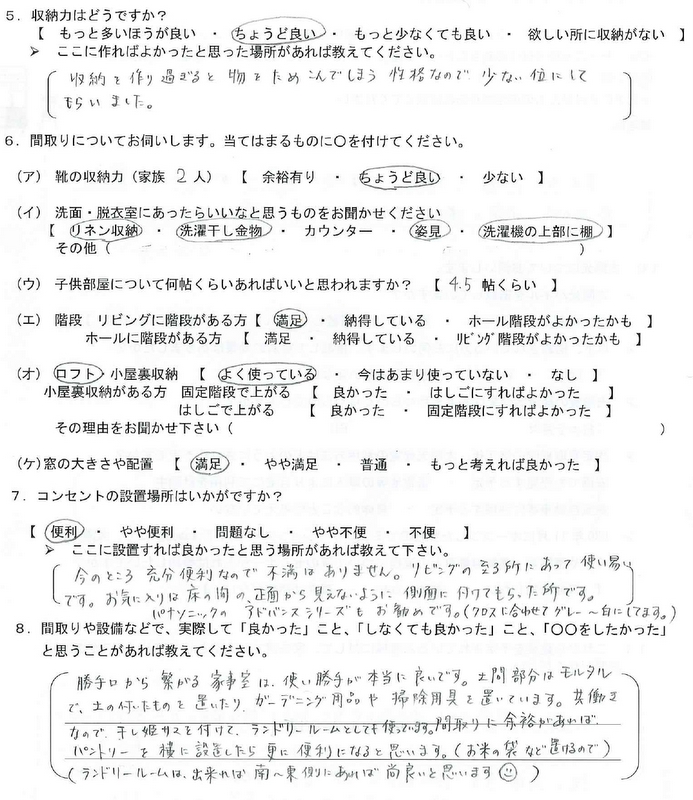 ５．収納力はどうですか？
【 もっと多いほうが良い ・ ちょうど良い ・ もっと少なくても良い ・ 欲しい所に収納がない 】
➤ ここに作ればよかったと思った場所があれば教えてください。
収納を作り過ぎると物をためこんでしまう性格なので少ない位にして
もらいました。
６．間取りについてお伺いします。当てはまるものに〇を付けてください。
（ア） 靴の収納力（家族 2 人） 【 余裕有り ・ ちょうど良い ・ 少ない 】
（イ） 洗面・脱衣室にあったらいいなと思うものをお聞かせください
【 リネン収納 ・ 洗濯干し金物 ・ カウンター ・ 姿見 ・ 洗濯機の上部に棚 】
その他（ ）
（ウ） 子供部屋について何帖くらいあればいいと思われますか？ 【 4.5 帖くらい 】
（エ） 階段 リビングに階段がある方【 満足 ・ 納得している ・ ホール階段がよかったかも 】
ホールに階段がある方 【 満足 ・ 納得している ・ リビング階段がよかったかも 】
（オ） ロフト・小屋裏収納 【 よく使っている ・ 今はあまり使っていない ・ なし 】
小屋裏収納がある方 固定階段で上がる 【 良かった ・ はしごにすればよかった 】
はしごで上がる 【 良かった ・ 固定階段にすればよかった 】
その理由をお聞かせ下さい（ ）
（ケ）窓の大きさや配置 【 満足 ・ やや満足 ・ 普通 ・ もっと考えれば良かった 】
７．コンセントの設置場所はいかがですか？
【 便利 ・ やや便利 ・ 問題なし ・ やや不便 ・ 不便 】
➤ ここに設置すれば良かったと思う場所があれば教えて下さい。
今のところ充分便利なので不満はありません。リビングの至る所にあって使い易い
です。お気に入りは床の間の正面から見えないように側面に付けてもらった所です。
パナソニックのアドバンスシリーズもお勧めです。（クロスに合わせてグレー～白にしてます。）
８．間取りや設備などで、実際して「良かった」こと、「しなくても良かった」こと、「〇〇をしたかった」
と思うことがあれば教えてください。
勝手口から繋がる家事室は、使い勝手が本当に良いです。土間部分はモルタル
で、土の付いたものを置いたり、ガーデニング用品や掃除用具を置いています。共働き
なので、干し姫サマを付けて、ランドリールームとしても使っています。間取りに余裕があれば、
パントリーを横に設置したら更に便利になると思います。（お米の袋など置けるので）
（ランドリールームは、出来れば南～東側にあれば尚良いと思います☺）